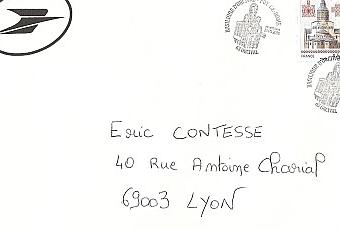 FRANCE
Eric CONTESSE
40 Rue Antoine Charial
69003 LYON